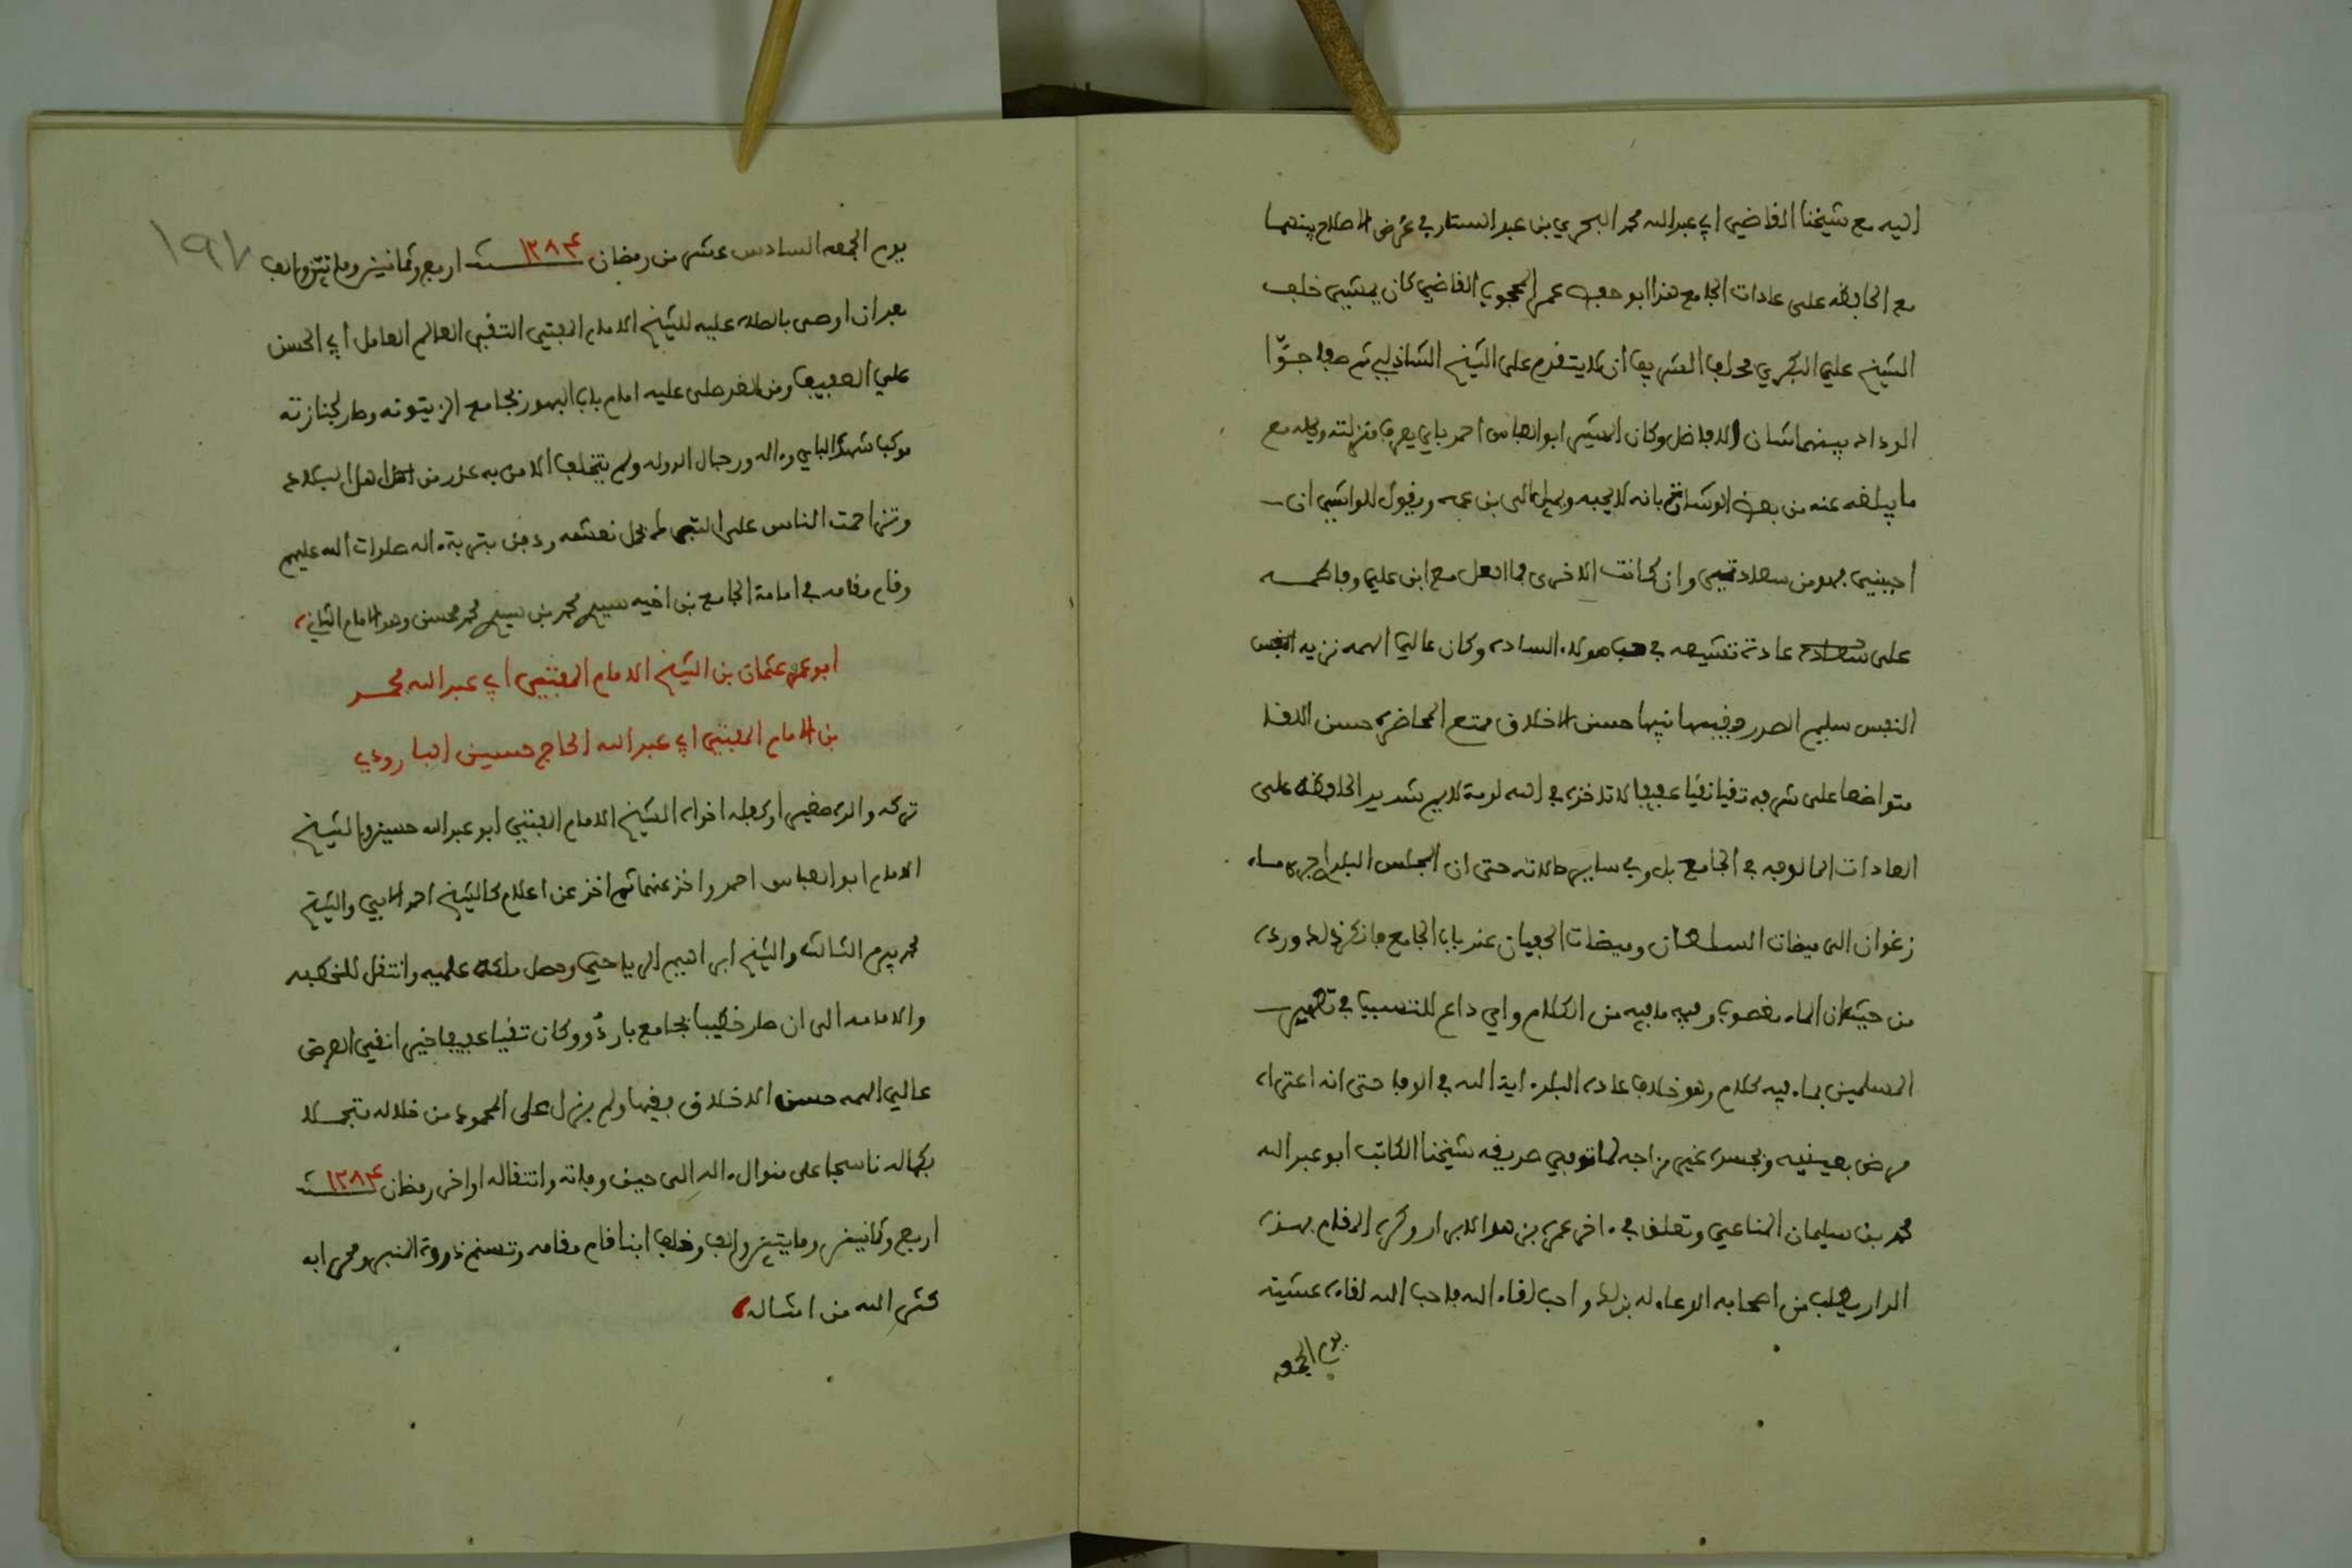 اليه مع شيخنا القاضي ابي عبد الله محمد البحري بن عبد الستار في غرض الاصلاح بينهما
مع المحافظه على عادات الجامع هذا ابو حفص عمر المحجوب القاضي كان يمشي خلف
الشيخ علي البكري محلف الشريف ان لا يتقدم على الشيخ الشاذلي ثم صفا جوّ
الوداد بينهما شان الافاضل وكان المشير ابو العباس احمد باي يعرف منزلته وكله مع
ما يبلغه عنه من بعض الوشاة بانه لا يحبه ويميل الى بن عمه ويقول للواشي ان
احبني فهو من سعادتي وان كانت الاخرى فما افعل مع ابن علي وفاطمه
على عادة تشيعه في حب هولاء الساده وكان عالي الهمه نزيه النفس
النفس سليم الصدر فقيها نبيها حسن الاخلاق ممتع المحاضره حسن اللقا
متواضعا على شرفه تقيا نقيا عفيفا لا تاخذه في الله لومة لايم شديد المحافظه على
العادات المالوفه في الجامع بل وفي ساير حالاته حتى ان المجلس البلدي اجرى ماء
زغوان الى ميضات السلطان وميضات الجفيان عند باب الجامع فانكر ذلك ورده
من حيث ان الماء مغصوب وفيه ما فيه من الكلام واي داع للتسبب في تطهير
المسلمين بماء فيه كلام وهو خلاف عادة البلد اية الله في الوفا حتى انه اعتراه
مرض بعينيه وبجسده غير مزاجه لما توفي صديقه شيخنا الكاتب ابو عبد الله
محمد بن سليمان المناعي وتعلق في ءاخر عمره بن هو الابرار وكره المقام بهذه
الدار يطلب من اصحابه الدعاء له بذلك واحب لقاء الله فاحب الله لقاءه عشية
يوم الجمعه
١٩٧
يوم الجمعه السادس عشر من رمضان سنة ١٢٨٤ اربع وثمانين ومايتين والف
بعد ان اوصى بالصلاه عليه للشيخ الامام المفتي التقي العالم العامل ابي الحسن
علي العفيف ومن الغد صلى عليه امام باب البحور بجامع الزيتونه وصار لجنازته
موكب شهده الباي وءاله ورجال الدوله ولم يتخلف الا من به عذر من اهل البلاد
وتزاحمت الناس على التبرك بحمل نعشه ودفن بتربة ءاله صلوات الله عليهم
وقام مقامه في امامة الجامع بن اخيه سيدي محمد بن سيدي محمد محسن وهو الامام الثاني
ابو عمر عثمان بن الشيخ الامام المفتي ابي عبد الله محمد
بن الامام المفتي ابي عبد الله الحاج حسين البارودي
تركه والده صغيرا وكفله اخواه الشيخ الامام المفتي ابو عبد الله حسين والشيخ
الامام ابو العباس احمد واخذ عنهما ثم اخذ عن اعلام كالشيخ احمد الابي والشيخ
محمد بيرم الثالث والشيخ ابراهيم الرياحي وحصل ملكة علميه وانتقل للخطبه
والامامه الى ان صار خطيبا بجامع باردُو وكان تقيا عفيفا خيرا نقي العرض
عالي الهمه حسن الاخلاق فقيها ولم يزل على المحمود من خلاله متجملا
بكماله ناسجا على منوال ءاله الى حين وفاته وانتقاله اواخر رمضان سنة ١٢٨٤
اربع وثمانين ومايتين والف وخلف ابنا قام مقامه وتسنم ذروة المنبر ومحرابه
كثر الله من امثاله